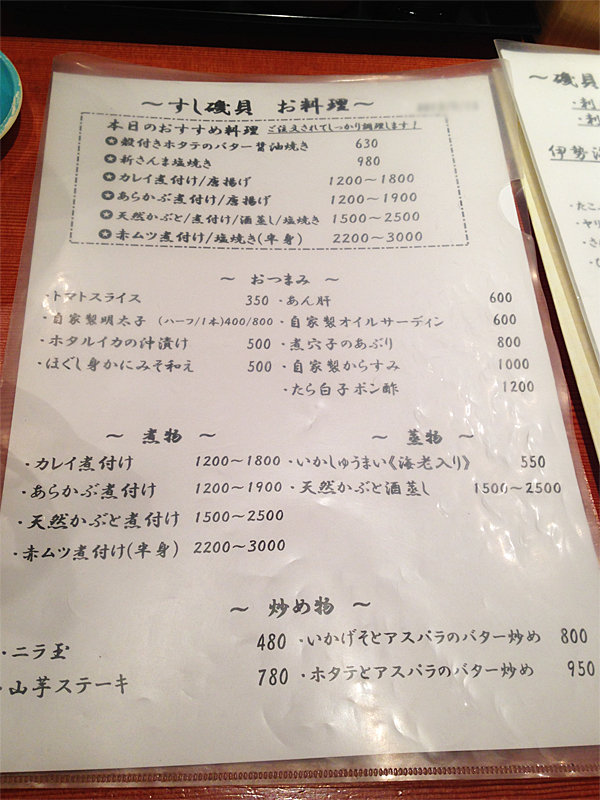 ～すし磯貝　お料理～
本日のおすすめ料理 ご注文されてしっかり調理します！
✪殻付きホタテのバター醤油焼き 630
✪新さんま塩焼き 980
✪カレイ煮付け/唐揚げ 1200～1800
✪あらかぶ煮付け/唐揚げ 1200～1900
✪天然かぶと/煮付け/酒蒸し/塩焼き 1500～2500
✪赤ムツ煮付け/塩焼き(半身) 2200～3000
～ おつまみ ～
・トマトスライス 350
・自家製明太子 (ハーフ/1本)400/800
・ホタルイカの沖漬け 500
・ほぐし身かにみそ和え 500
・あん肝 600
・自家製オイルサーデイン 600
・煮穴子のあぶり 800
・自家製からすみ 1000
・たら白子ポン酢 1200
～ 煮物 ～
・カレイ煮付け 1200～1800
・あらかぶ煮付け 1200～1900
・天然かぶと煮付け 1500～2500
・赤ムツ煮付け(半身) 2200～3000
～ 蒸物 ～
・いかしゅうまい《海老入り》 550
・天然かぶと酒蒸し 1500～2500
～ 炒め物 ～
・ニラ玉 480
・山芋ステーキ 780
・いかげそとアスパラのバター炒め 800
・ホタテとアスパラのバター炒め 950
～磯貝
・刺
・刺
伊勢
・たこ
・ヤリ
・さ